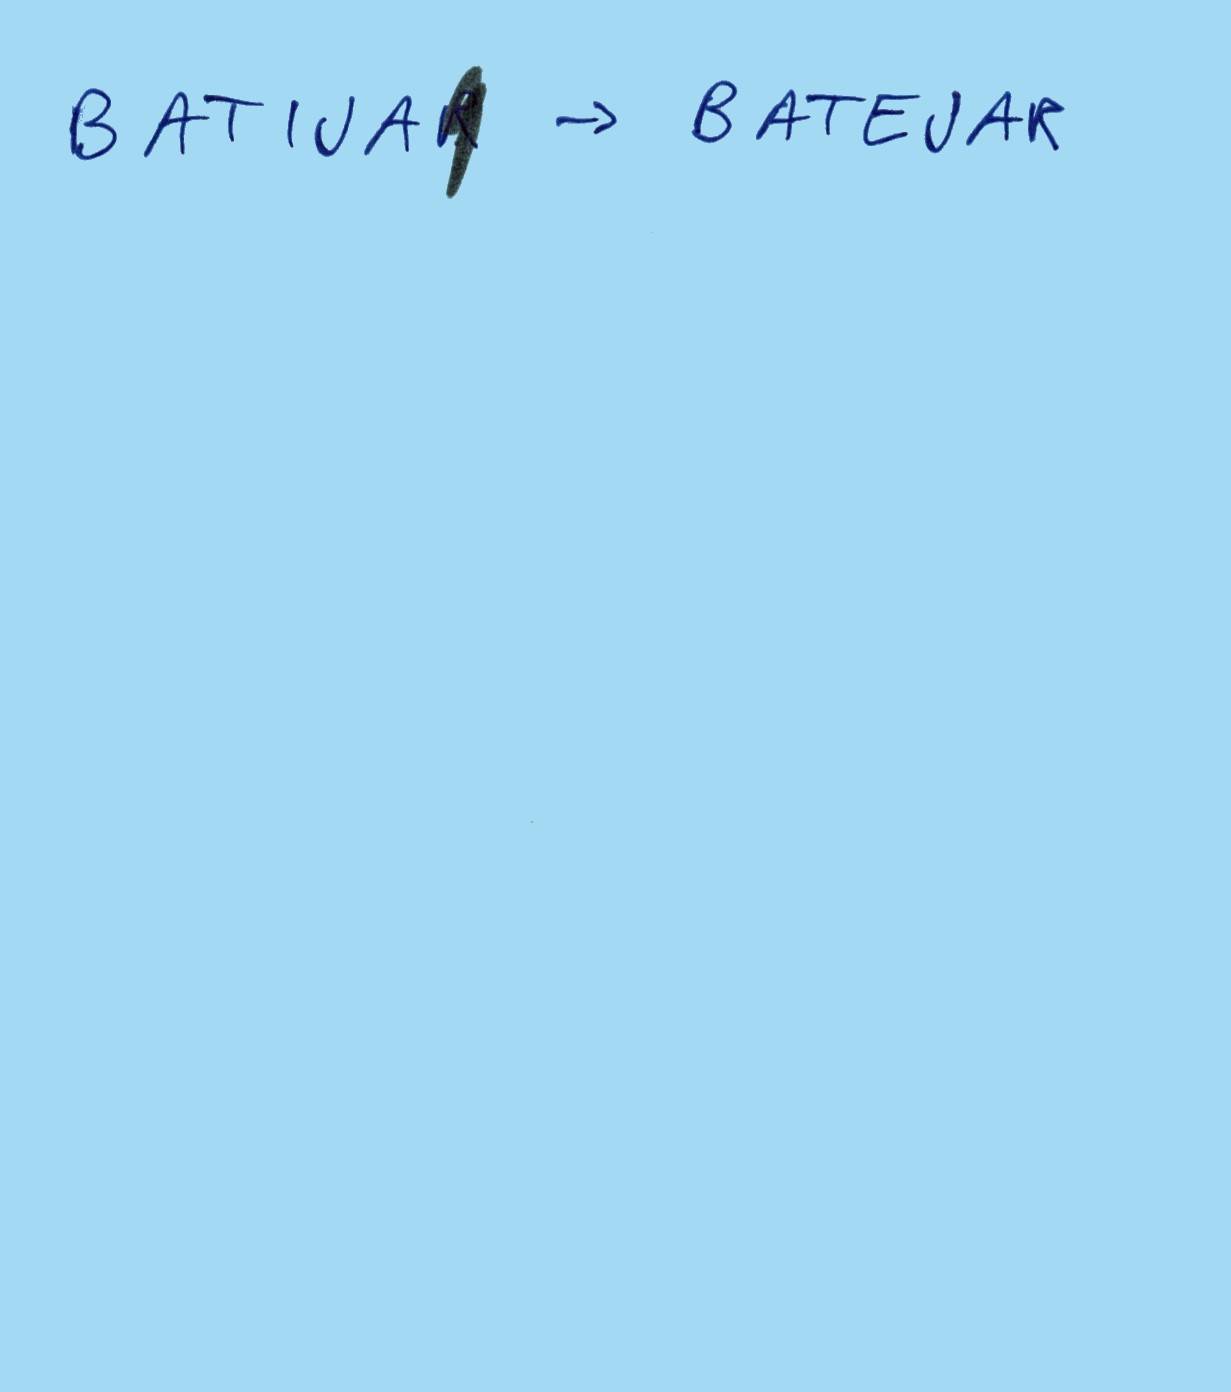 BATIJAR → BATEJAR